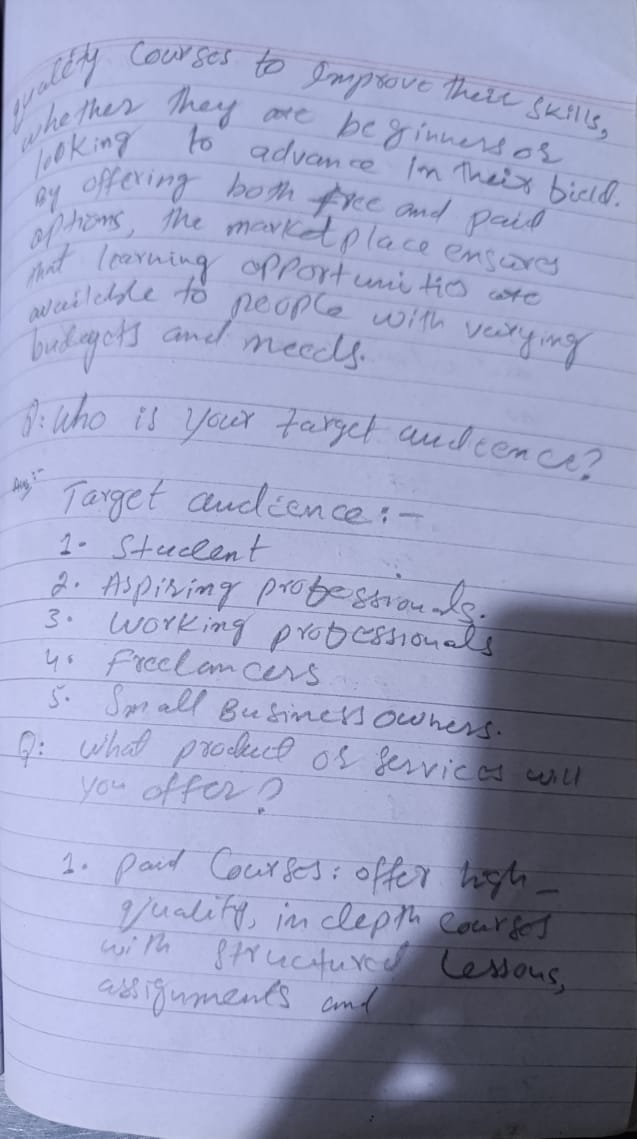 quality Courses to Improve their skills,
whether they are beginners or
looking to advance In their field.
By offering both free and paid
options, the marketplace ensures
that learning opportunities are
available to people with varying
budgets and needs.
Q: Who is your target audience?
Ans:-
Target audience:-
1. Student
2. Aspiring professionals.
3. Working professionals
4. Freelancers
5. Small Business owners.
Q: What product or services will
you offer?
1. paid Courses: offer high_
quality, in depth Courses
with structured Lessons,
assignments and